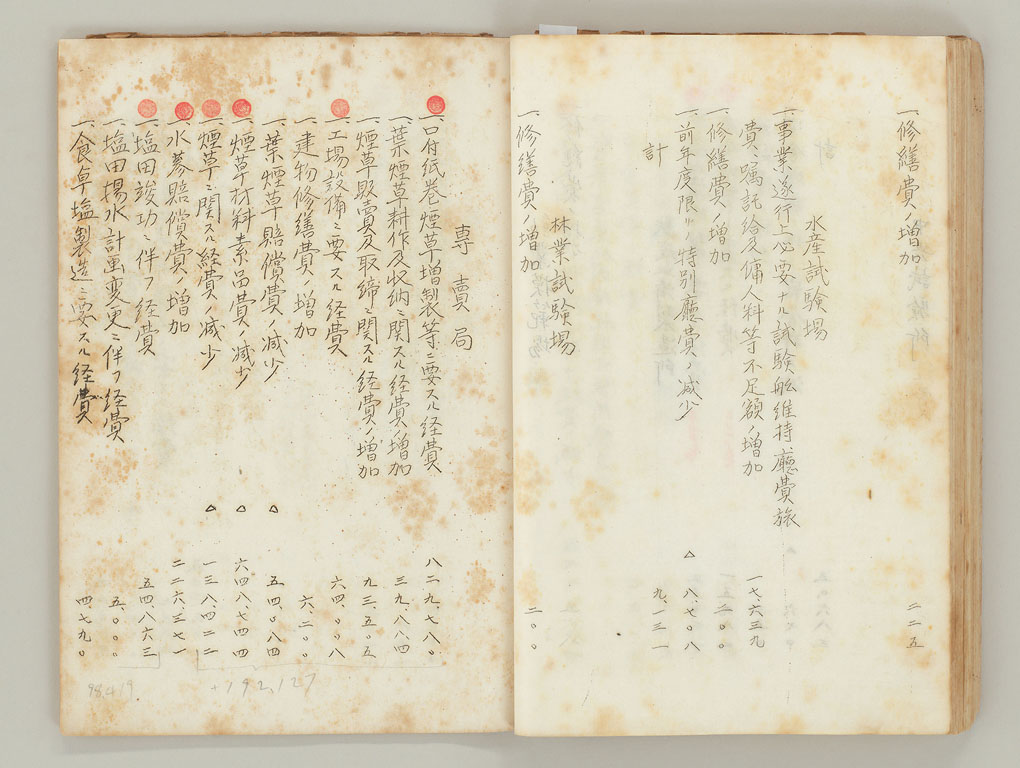 一、修繕費ノ増加 二二五
水産試験場
一、事業遂行上必要ナル試験船維持廳費旅
費、嘱託給及傭人料等不足額ノ増加 一七、六三九
一、修繕費ノ増加 二〇〇
一、前年度限リノ特別廳費ノ減少 △ 八、七〇八
計 九、一三一
林業試験場
一、修繕費ノ増加 二〇〇
専賣局
一、口付紙巻煙草増製等ニ要スル経費 八二九、七八〇
一、葉煙草耕作及収納ニ関スル経費ノ増加 三九、八八四
一、煙草販賣及取締ニ関スル経費ノ増加 九三、五〇五
一、工場設備ニ要スル経費 六四、〇〇八
一、建物修繕費ノ増加 六、二〇〇
一、葉煙草賠償費ノ減少 △ 五四、〇八四
一、煙草材料素品費ノ減少 △ 六四八、七四四
一、煙草ニ関スル経費ノ減少 △ 一三八、四二二
一、水参賠償費ノ増加 二二六、三七一
一、塩田竣功ニ伴フ経費 五四、八六三
一、塩田揚水計画変更ニ伴フ経費 五、〇〇〇
一、食卓塩製造ニ要スル経費 四、七九〇
+192,127
98,419